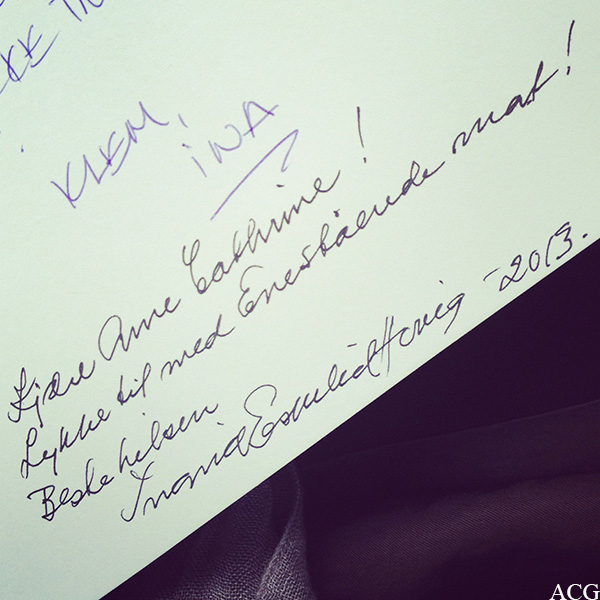 KLEM,
INA
Kjære Anne Cathrine!
Lykke til med Enestående mat!
Beste hilsen
Ingrid Espelid Hovig -2013.
ACG